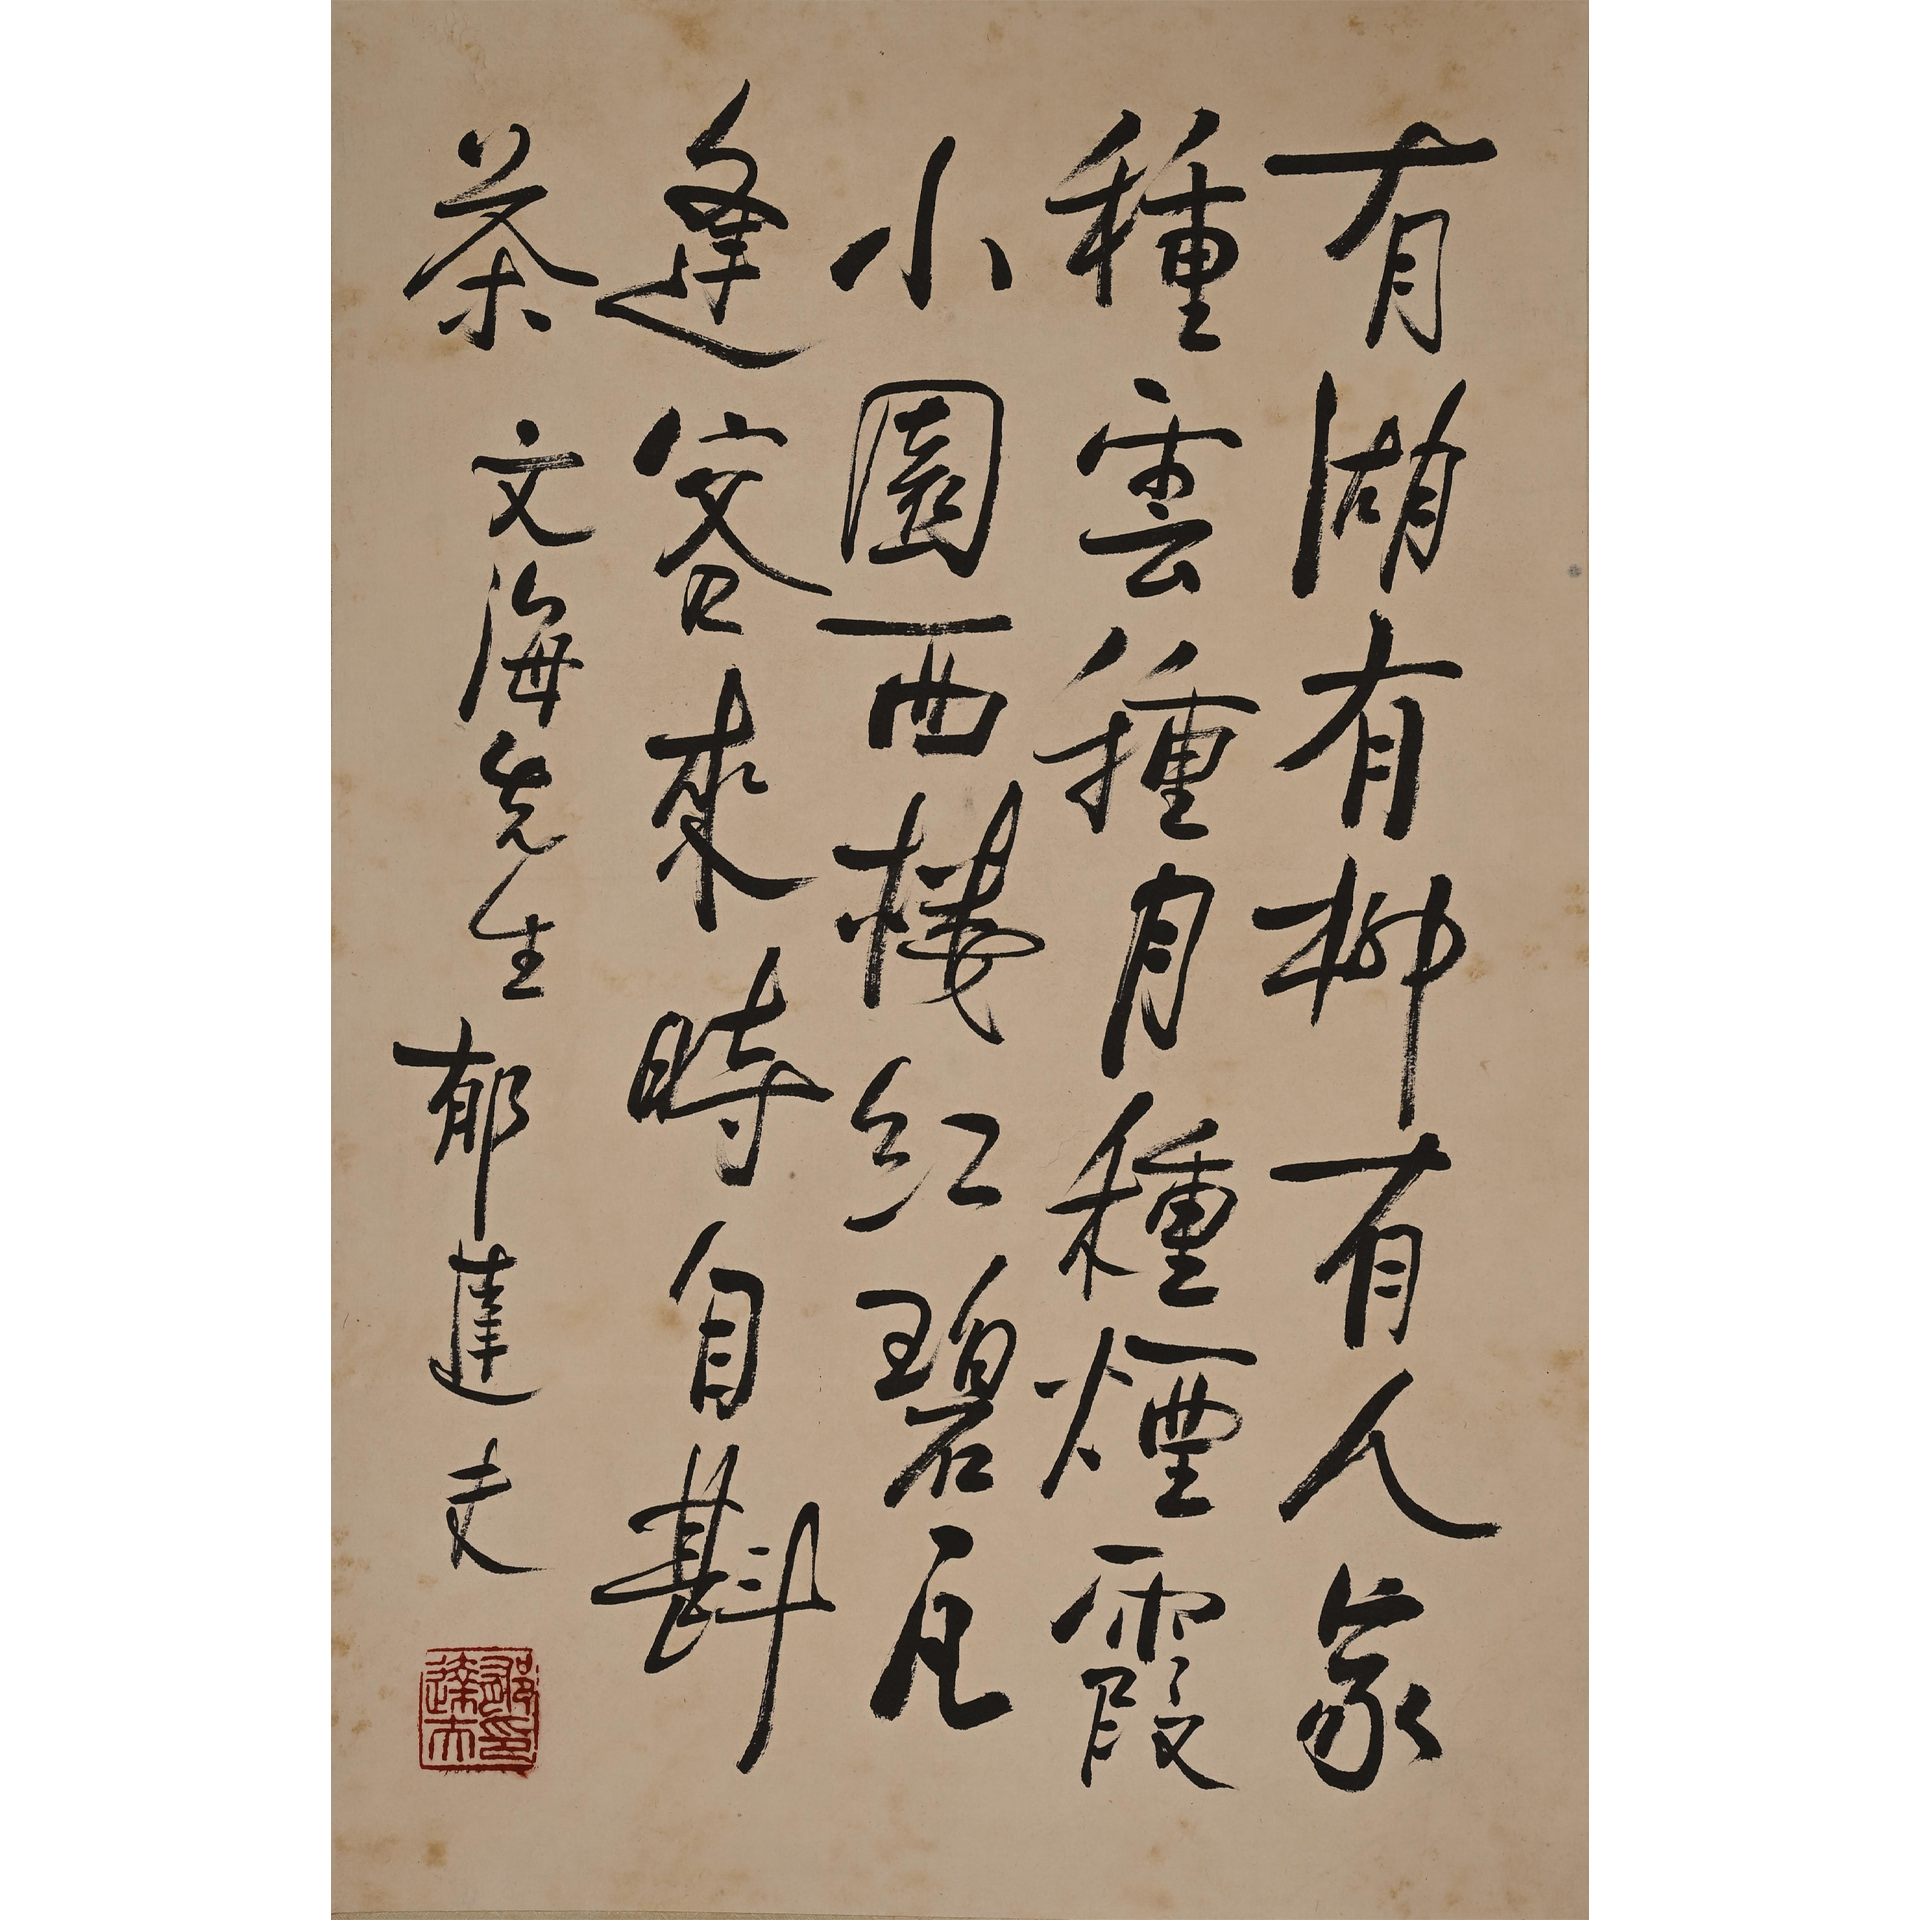 有湖有柳有人家
種雲種月種煙霞
小園西樓紅碧瓦
逢客來時自斟
茶 文海先生 郁達夫
郁達夫印